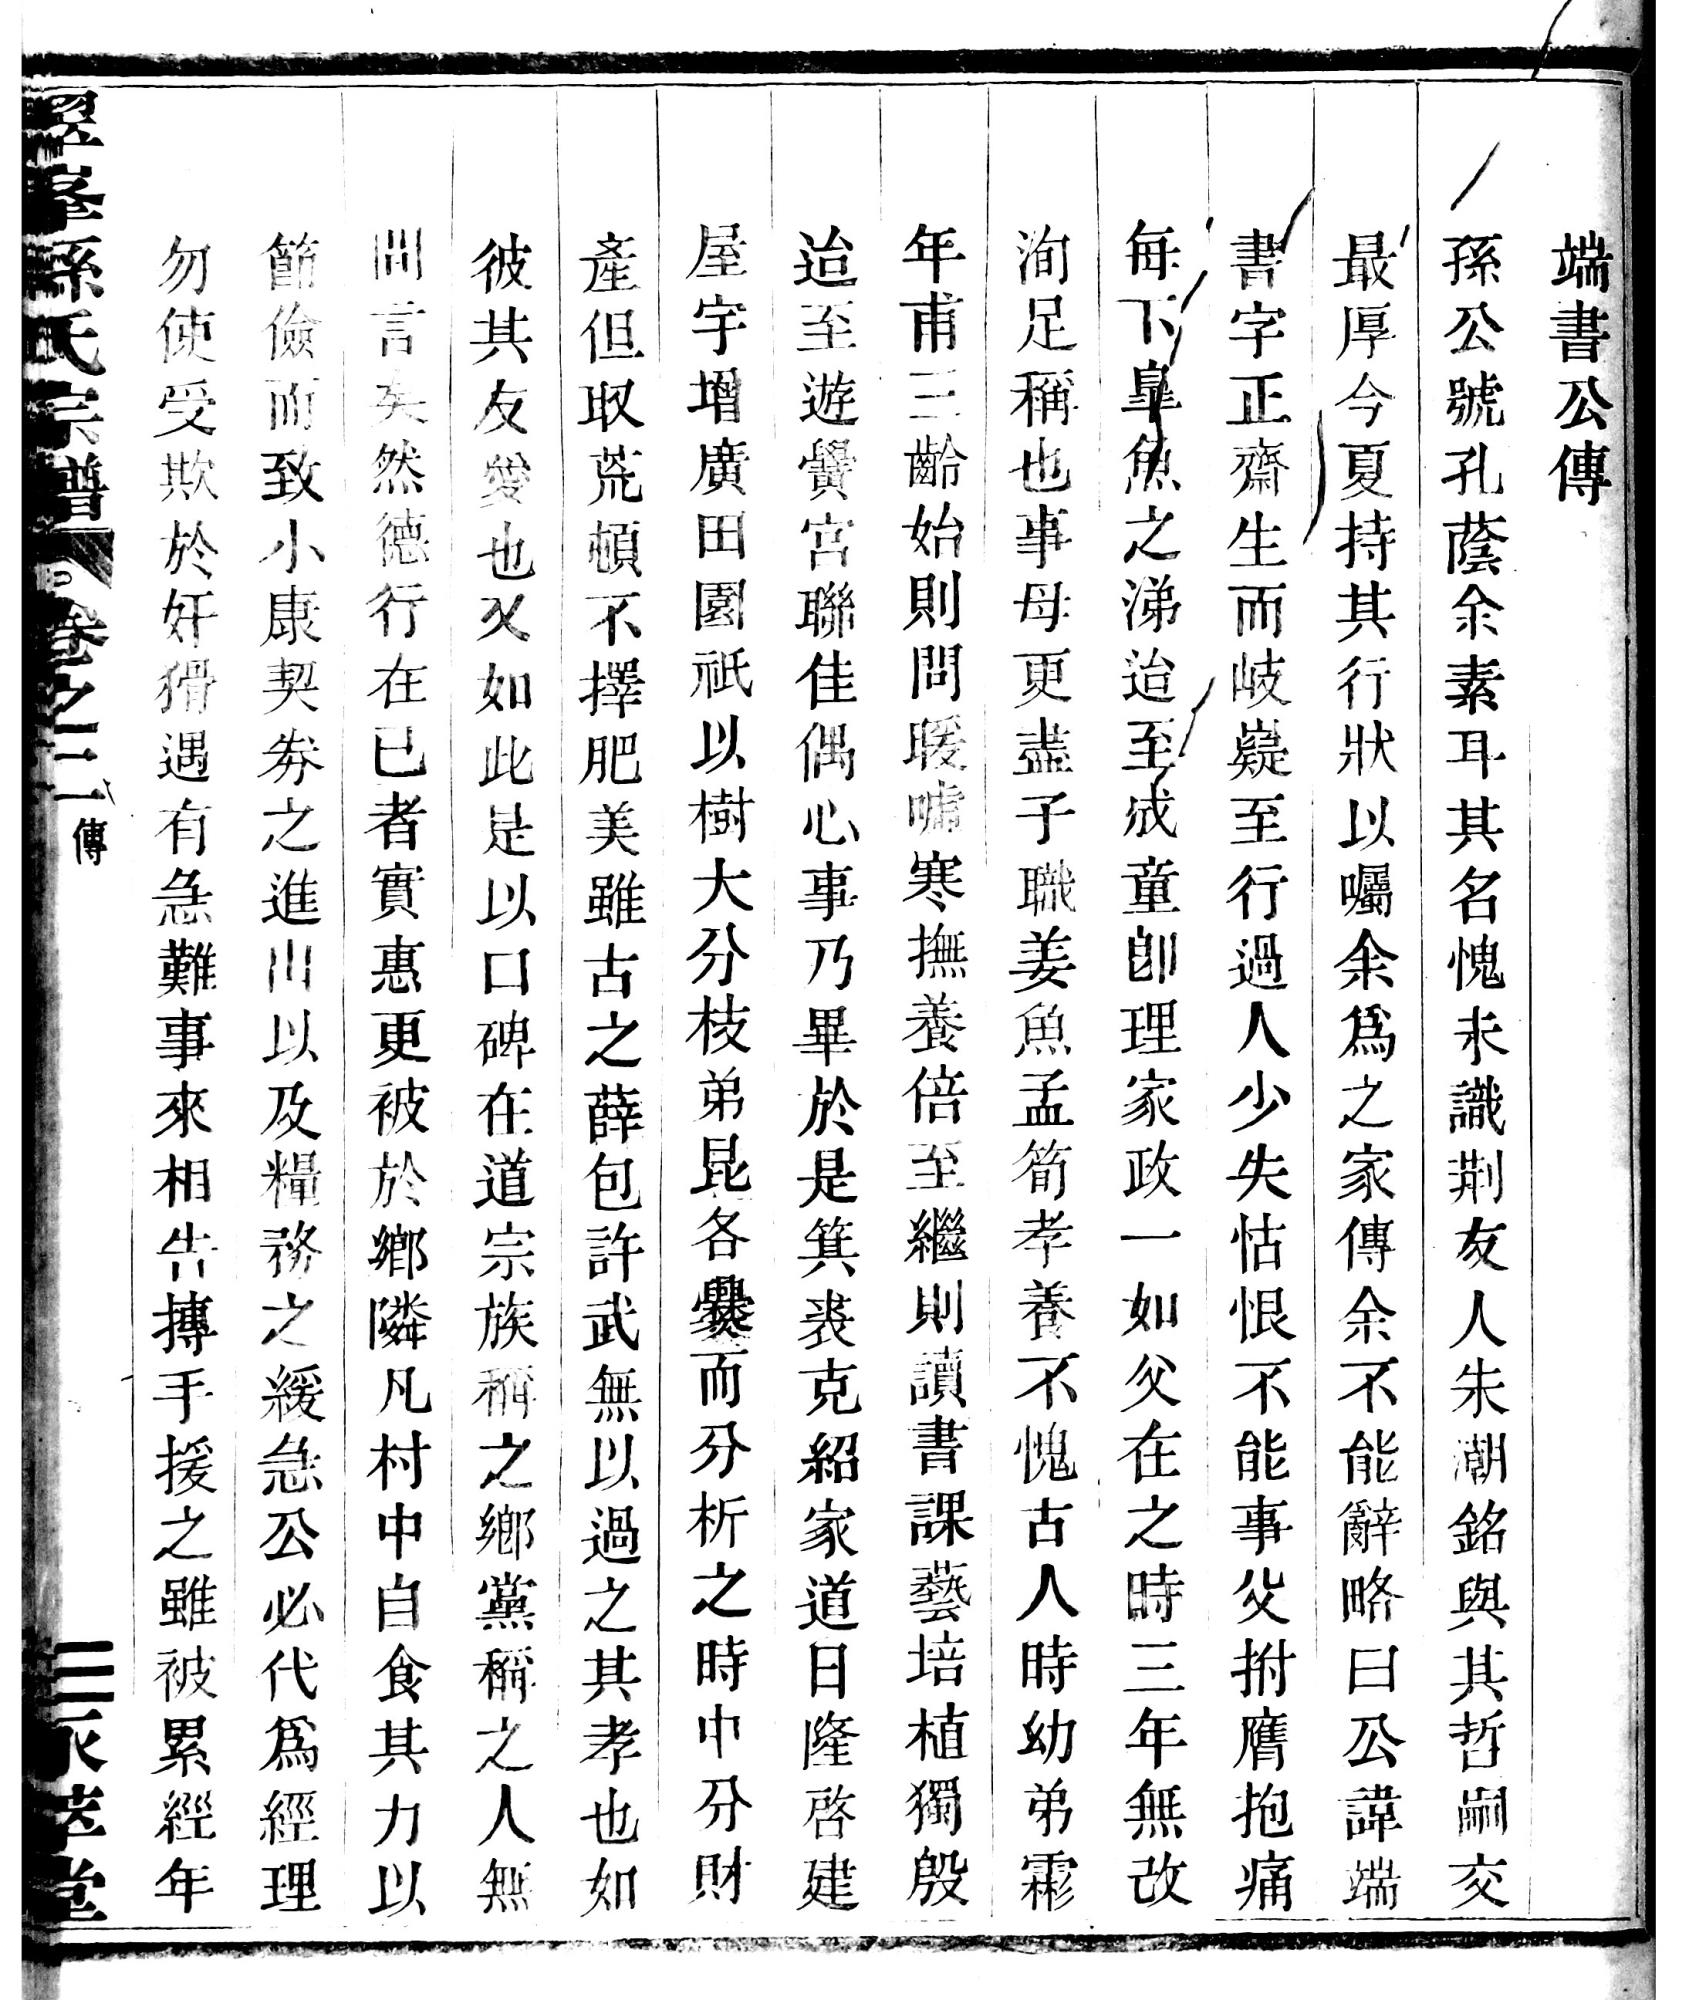 端書公傳
孫公號孔蔭余素耳其名愧未識荆友人朱潮銘與其哲嗣交
最厚今夏持其行狀以囑余爲之家傳余不能辭略曰公諱端
書字正齋生而岐嶷至行過人少失怙恨不能事父拊膺抱痛
每下臯魚之涕迨至成童卽理家政一如父在之時三年無改
洵足稱也事母更盡子職姜魚孟筍孝養不愧古人時幼弟霦
年甫三齡始則問暖噓寒撫養倍至繼則讀書課藝培植獨殷
迨至遊黌宮聯佳偶心事乃畢於是箕裘克紹家道日隆啓建
屋宇增廣田園祇以樹大分枝弟昆各爨而分析之時中分財
產但取荒頓不擇肥美雖古之薛包許武無以過之其孝也如
彼其友愛也又如此是以口碑在道宗族稱之鄉黨稱之人無
間言矣然德行在已者實惠更被於鄉隣凡村中自食其力以
節儉而致小康契券之進出以及糧務之緩急公必代爲經理
勿使受欺於奸猾遇有急難事來相告摶手援之雖被累經年
翠峯孫氏宗譜 卷之二 傳 三 永萃堂